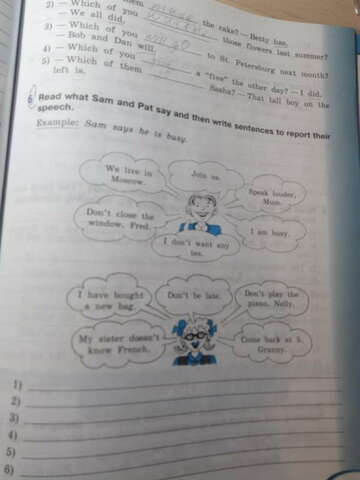 2) — Which of you the cake? — Betty has.
— We all did.
3) — Which of you those flowers last summer?
— Bob and Dan will.
to St. Petersburg next month?
4) — Which of you a "five" the other day? — I did.
5) — Which of them Sasha? — That tall boy on the
left is.
6 Read what Sam and Pat say and then write sentences to report their
speech.
Example: Sam says he is busy.
We live in
Moscow.
Join us.
Speak louder,
Mum.
Don't close the
window, Fred.
I am busy.
I don't want any
tea.
I have bought
a new bag.
Don't be late.
Don't play the
piano, Nelly.
My sister doesn't
know French.
Come back at 5,
Granny.
1)
2)
3)
4)
5)
6)